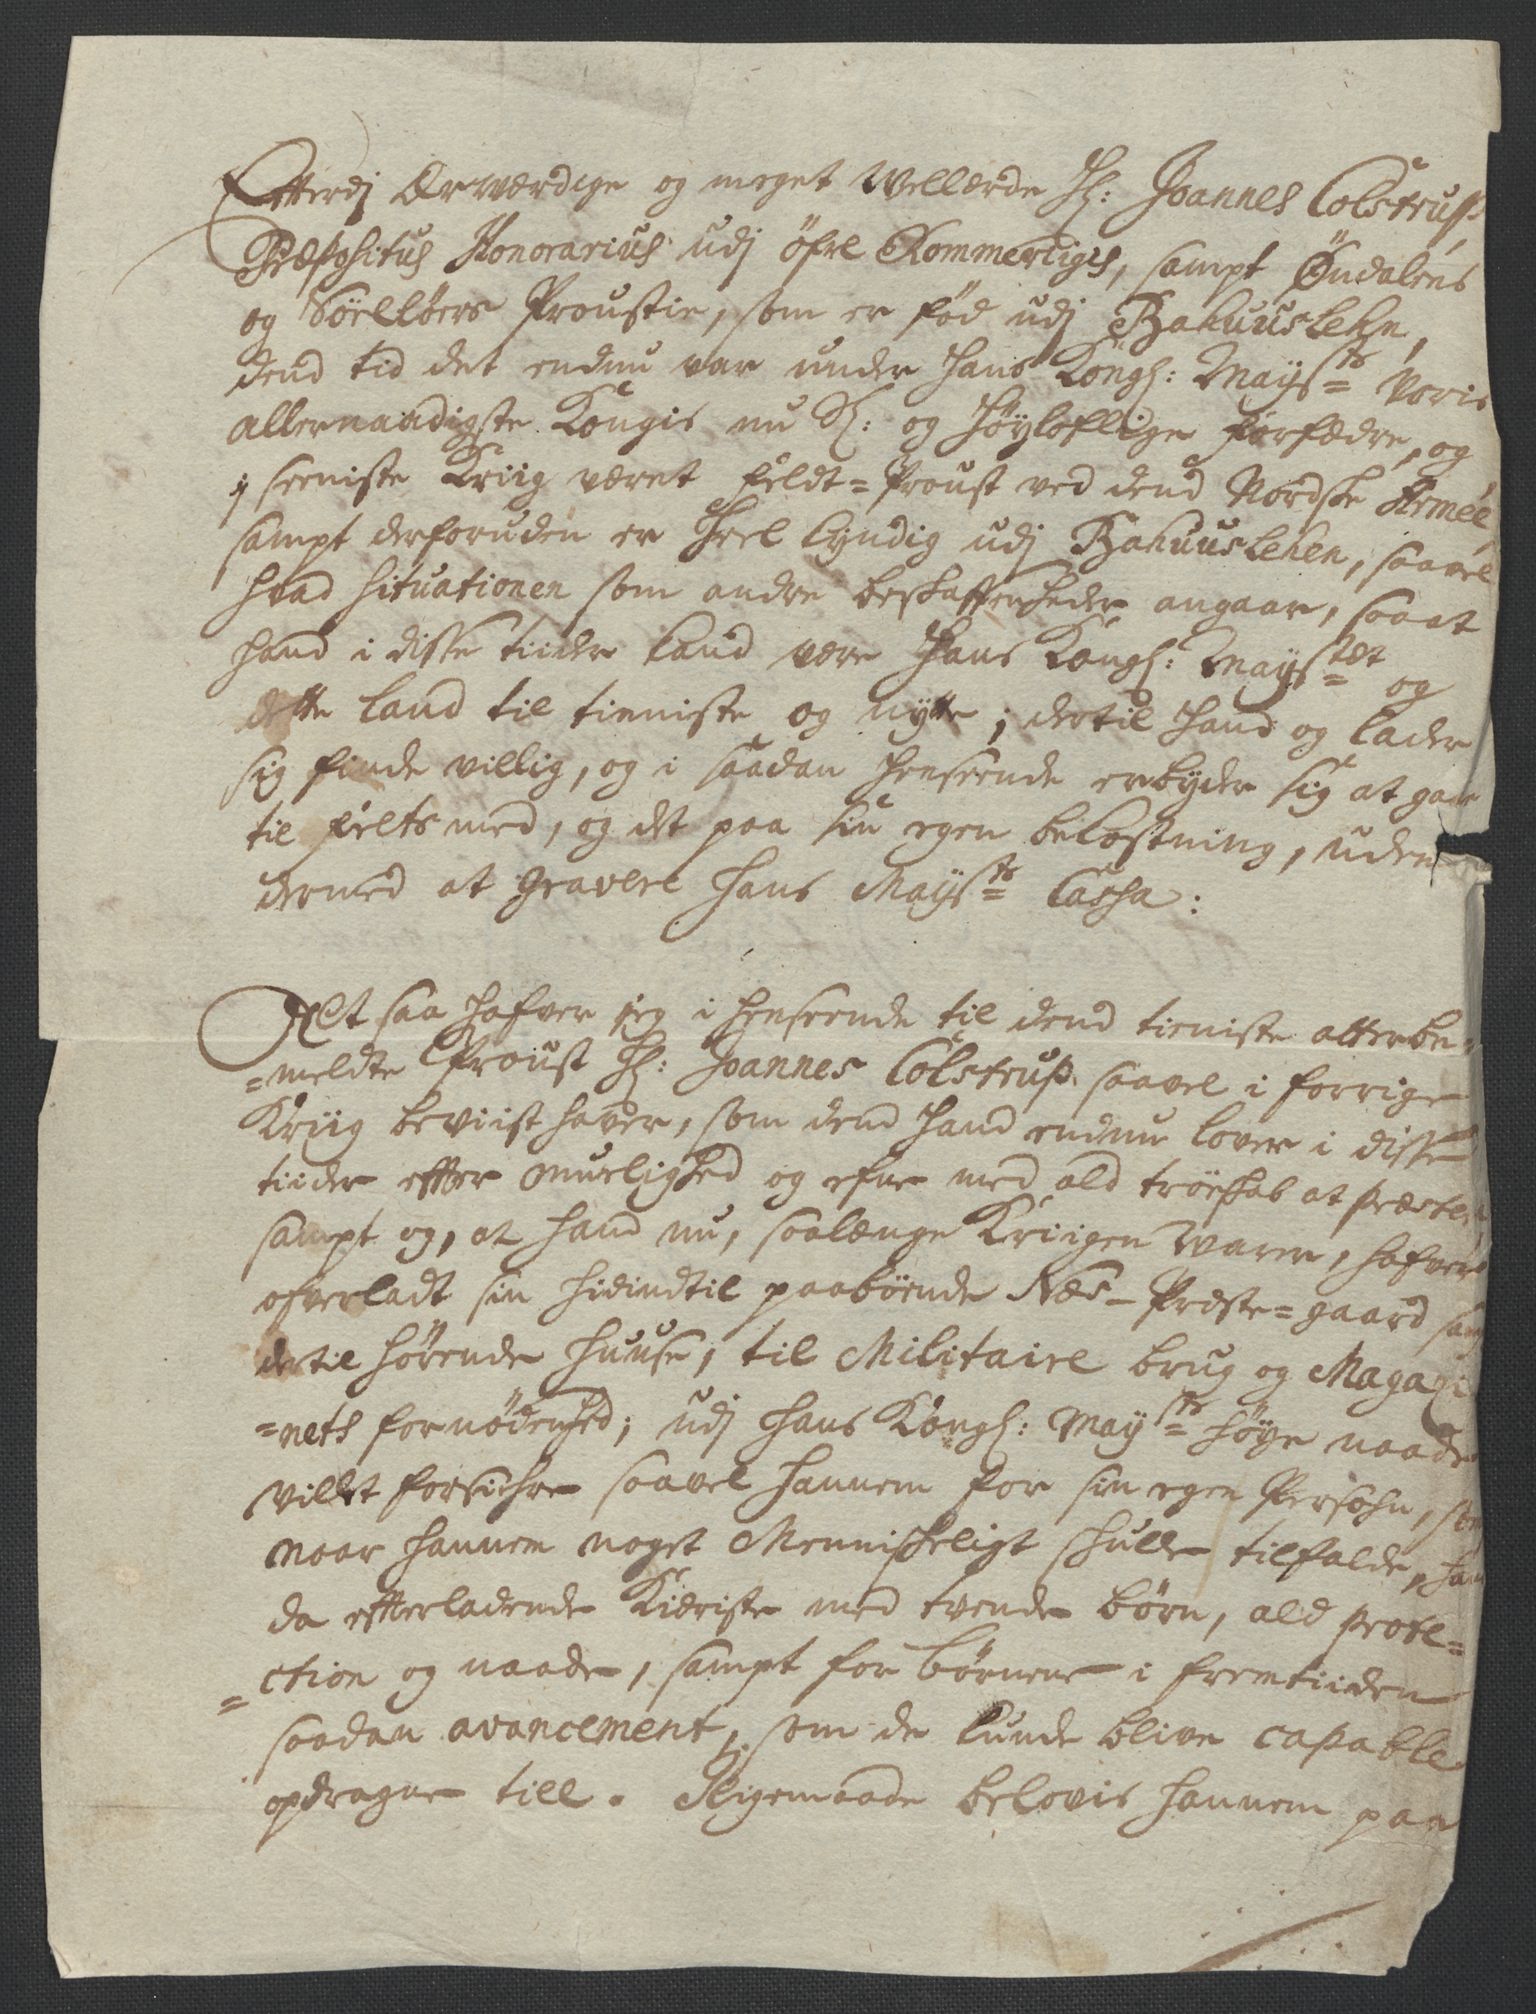 Efterdj Ærværdige og meget Wellærde Hr: Joannes Colstrup,
Præpositus Honorarius udj öfre Rommeriges, sampt Öudalens
og Soelløers Proustie, som er fød udj Bahuuslehn,
dend tid det endnu var under Hans Kongl: Mayststs voris
allernaadigste Kongis nu Sl: og Høyloflige forfædre, og
j seeniste Kriig været Feldt=Proust ved dend Nordske Armée,
sampt derforuden er Heel kyndig udj Bahuuslehen, saavel
hvad Situationen som andre beskaffenheder angaar, saa at
hand i disse tiider kand være Hans Kongl: Maystet og
dette land til tieniste og nytte; dertil hand og lader
sig finde villig, og i saadan henseende erbyder sig at gaae
til felts med, og det paa sin egen bekostning, uden
dermed at gravere Hans Maysts Cassa:
Alt saa hafver jeg i henseende til dend tieniste atterbe=
=meldte Proust Hr: Joannes Colstrup saavel i forrige
Kriig beviist haver, som dend hand endnu lover i disse
tiider efter muelighed og efne med ald troeskab at præstere,
sampt og, at hand nu, saalænge Kriigen warer, hafver
ofverladt sin hidindtil paaboende Næs-Præste=gaard samt
dertil hørende huuse, til Militaire brug og Magazi
=nets fornødenhed; udj Hans Kongl: Maysts høye naade
villet forsichre saavel hannem for sin egen Persohn, som
naar hannem noget Menniskeligt skulle tilfalde, hans
da efterladende Kieriste med tvende børn, ald prote=
=ction og naade, sampt for børnene i fremtiiden
saadan avancement, som de kunde blive capable
opdragne till. Ligemaade belovis hannem paa